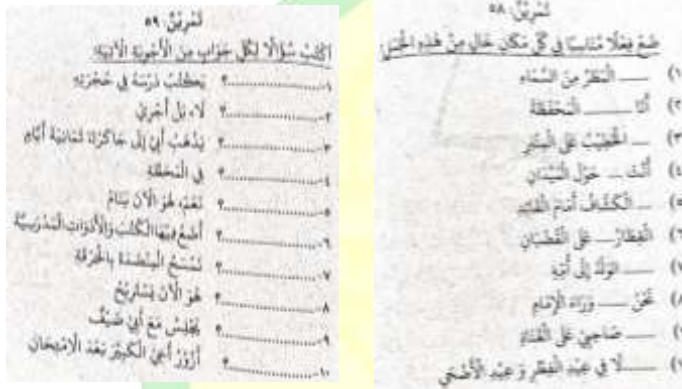 تَمْرِيْنٌ ٥٨
ضَعْ فِعْلًا مُنَاسِبًا فِي كُلِّ مَكَانٍ خَالٍ مِنْ هٰذِهِ الْجُمَلِ:
١) ــــــ الْمَطَرُ مِنَ السَّمَاءِ
٢) أَنَا ــــــ الْمِحْفَظَةَ
٣) ــــــ الْخَطِيْبُ عَلَى الْمِنْبَرِ
٤) أَنْتَ ــــــ حَوْلَ الْمَيْدَانِ
٥) ــــــ الْكَشَّافُ أَمَامَ الْقَائِدِ
٦) الْقِطَارُ ــــــ عَلَى الْقُضْبَانِ
٧) ــــــ الْوَلَدُ إِلَى أُمِّهِ
٨) نَحْنُ ــــــ وَرَاءَ الْإِمَامِ
٩) ــــــ صَاحِبِيْ عَلَى الْقَنَاةِ
١) ــــــ لَا فِي عِيْدِ الْفِطْرِ وَ عِيْدِ الْأَضْحَى
تَمْرِيْنٌ ٥٩
اُكْتُبْ سُؤَالًا لِكُلِّ جَوَابٍ مِنَ الْأَجْوِبَةِ الْآتِيَةِ:
١-..................؟ يَكْتُبُ دَرْسَهُ فِي حُجْرَتِهِ
٢-..................؟ لَا، بَلْ أَجْرِيْ
٣-..................؟ يَذْهَبُ أَبِيْ إِلَى جَاكَرْتَا ثَمَانِيَةَ أَيَّامٍ
٤-..................؟ فِي الْمَحَطَّةِ
٥-..................؟ نَعَمْ، هُوَ الْآنَ يَنَامُ
٦-..................؟ أَضَعُ فِيْهَا الْكُتُبَ وَالْأَدَوَاتِ الْمَدْرَسِيَّةَ
٧-..................؟ نَمْسَحُ الْمِنْضَدَةَ بِالْخِرْقَةِ
٨-..................؟ هُوَ الْآنَ يَسْتَرِيْحُ
٩-..................؟ يَجْلِسُ مَعَ أَبِيْ ضَيْفٌ
١٠-..................؟ أَزُوْرُ أَخِيْ الْكَبِيْرَ بَعْدَ الْاِمْتِحَانِ